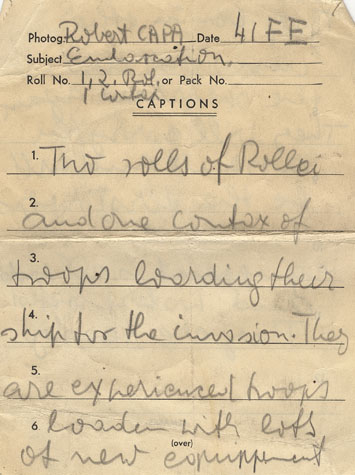 Photog. Robert CAPA Date 4/FE
Subject Embarcation,
Roll No. 1, 2, Rol, or Pack No.
1 Contax
CAPTIONS
1. Two rolls of Rollei
2. and one Contax of
3. troops loarding their
4. ship for the invasion. They
5. are experienced troops
6 loaden with lots
(over)
of new equippment